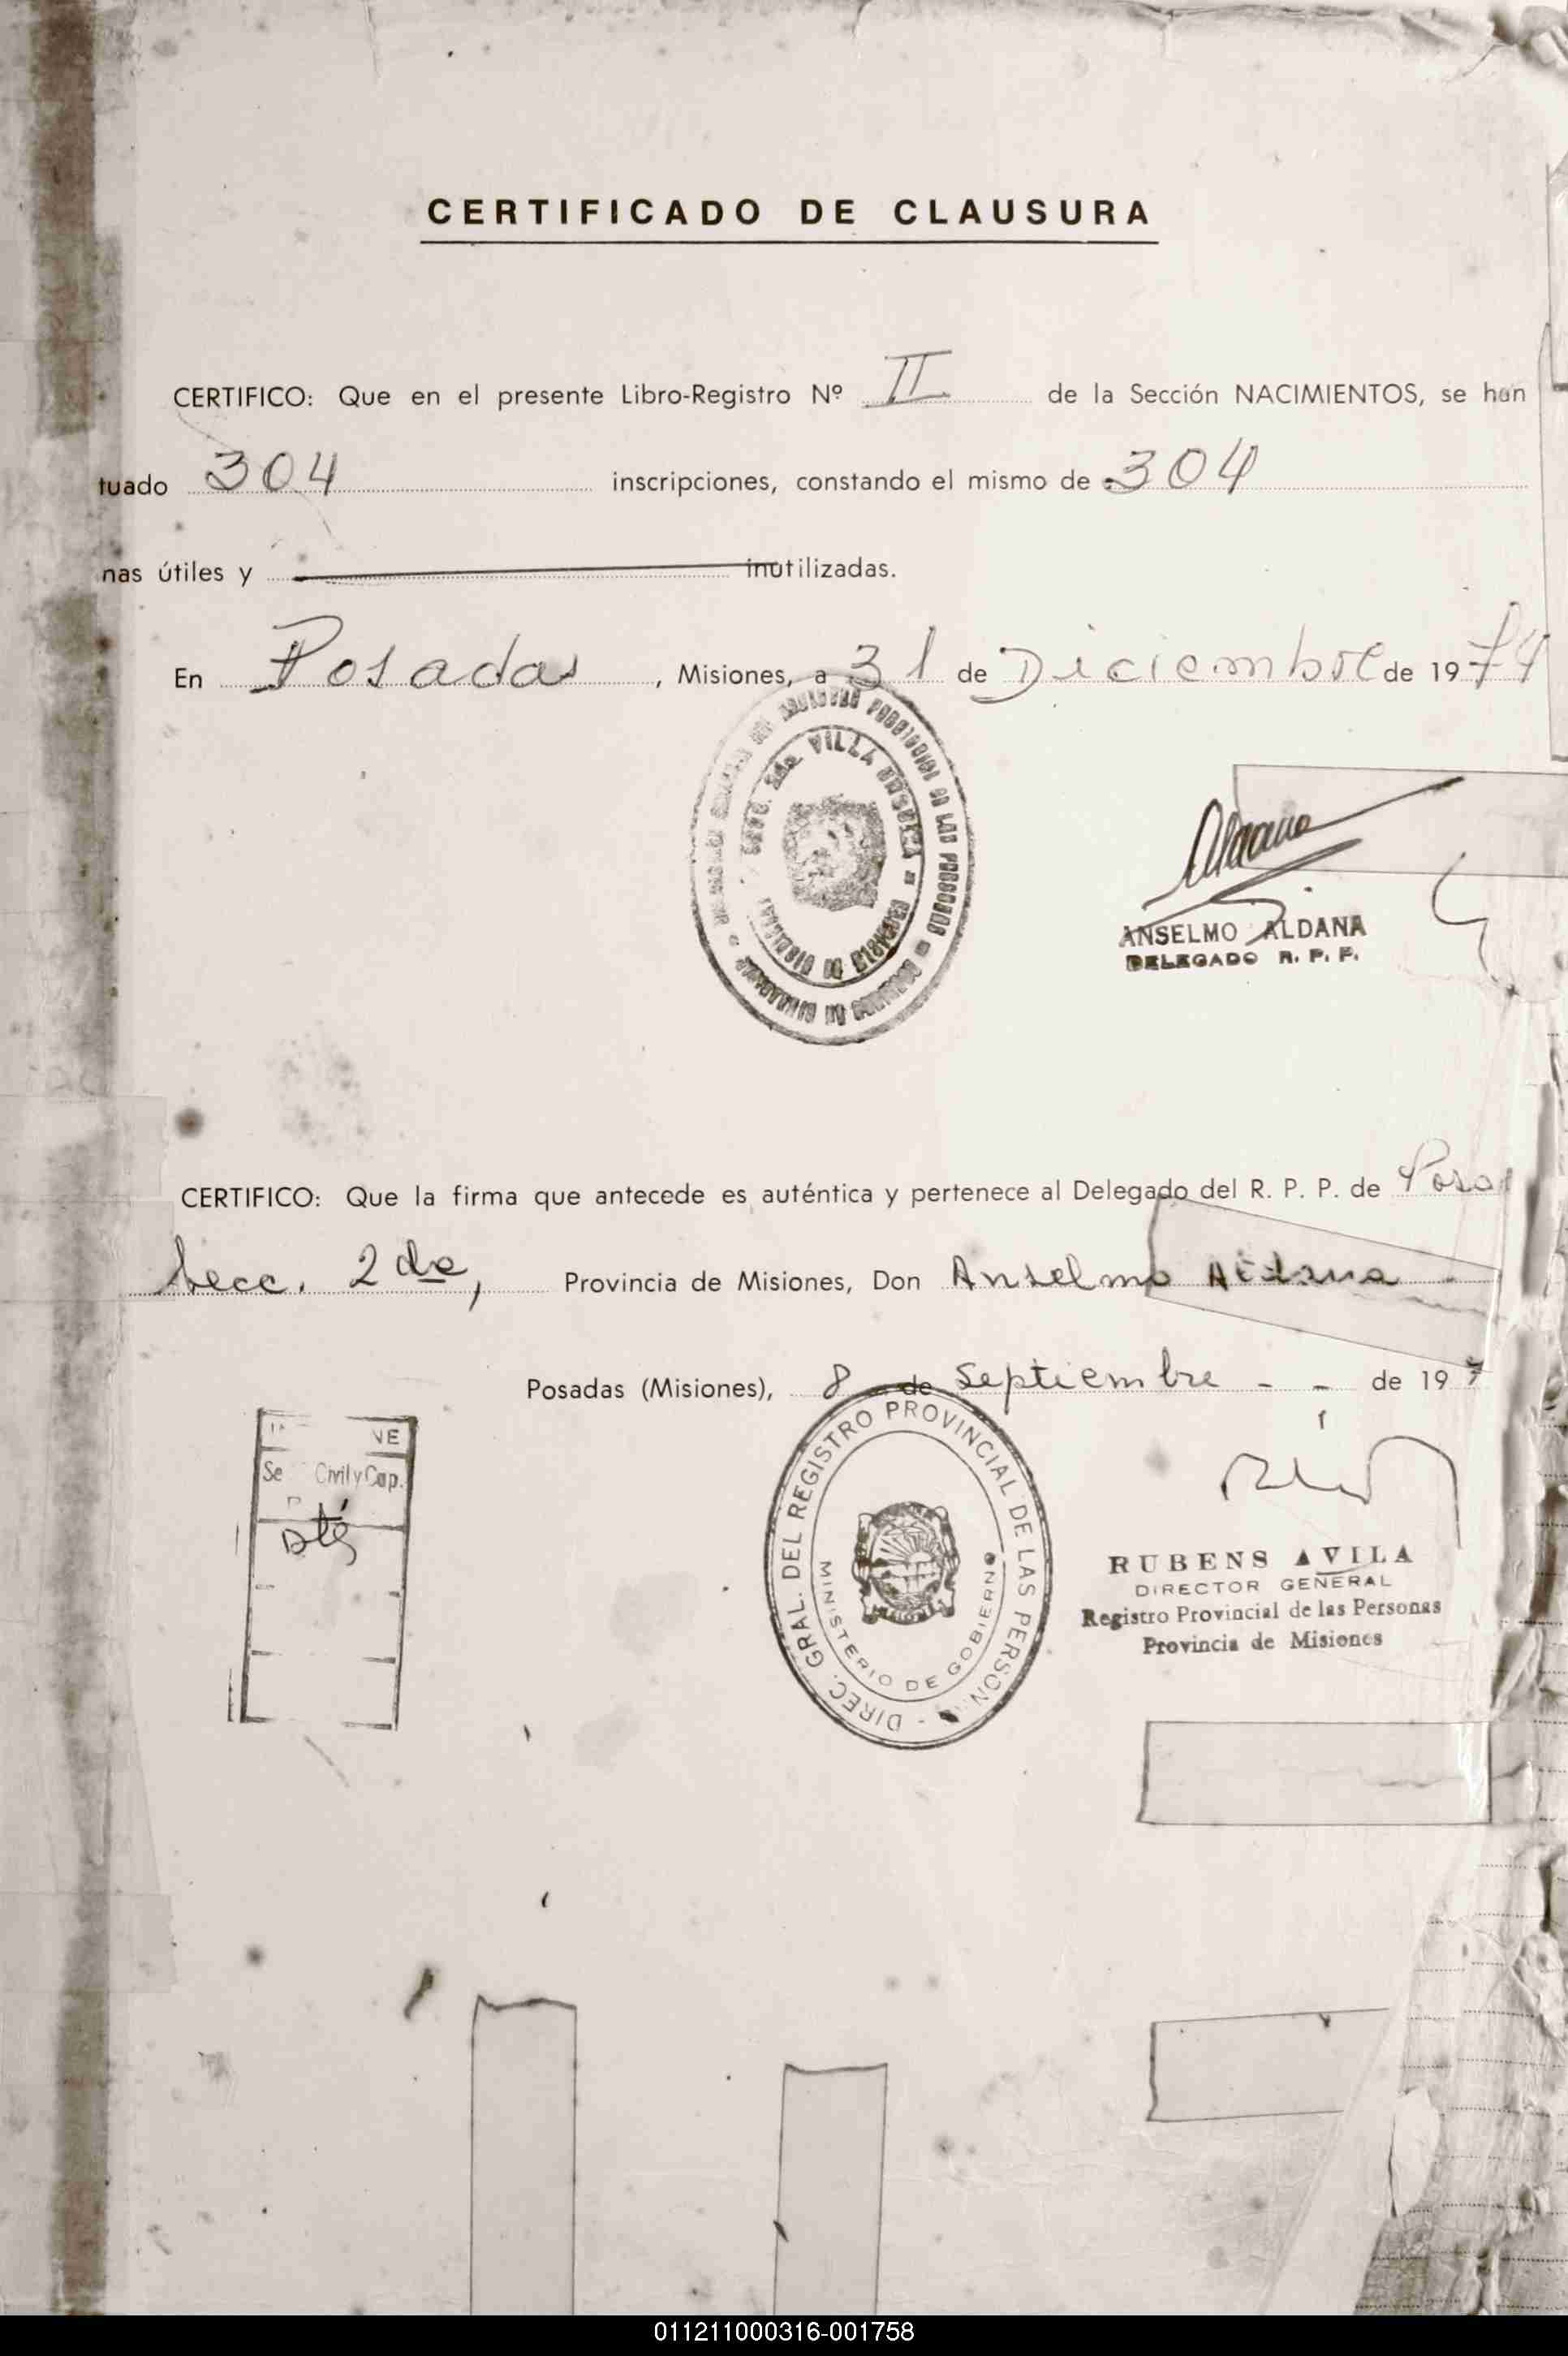 CERTIFICADO DE CLAUSURA
CERTIFICO: Que en el presente Libro-Registro Nº II de la Sección NACIMIENTOS, se han
tuado 304 inscripciones, constando el mismo de 304
nas útiles y inutilizadas.
En Posadas, Misiones, a 31 de Diciembre de 1974
VILLA
ANSELMO ALDANA
DELEGADO R. P. P.
CERTIFICO: Que la firma que antecede es auténtica y pertenece al Delegado del R. P. P. de Posa
Secc. 2da, Provincia de Misiones, Don Anselmo Aldana
Posadas (Misiones), 8 de Septiembre - - de 197
NE
Se Civil y Cap.
DIREC. GRAL. DEL REGISTRO PROVINCIAL DE LAS PERSON
MINISTERIO DE GOBIERNO
RUBENS AVILA
DIRECTOR GENERAL
Registro Provincial de las Personas
Provincia de Misiones
011211000316-001758